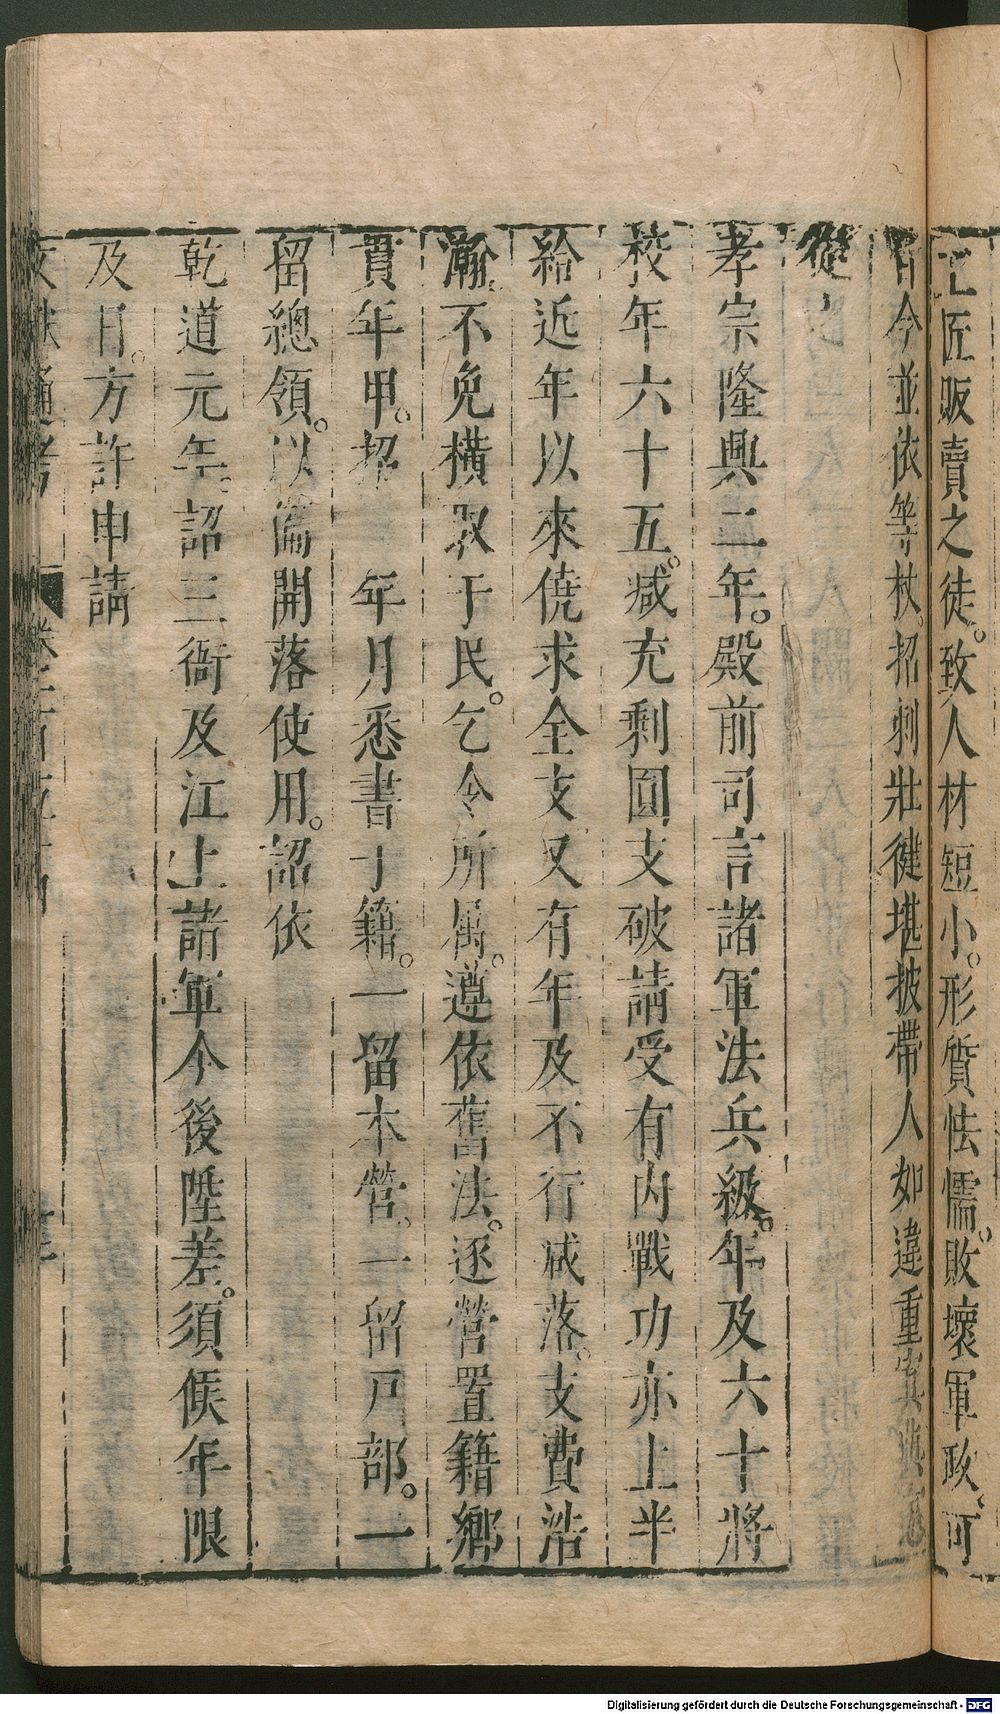 工匠販賣之徒。致人材短小。形質怯懦。敗壞軍政、可
今並依等杖。招刺壯健堪披帶人如違重寘
從
孝宗隆興二年。殿前司言諸軍法兵級。年及六十將
校年六十五。减充剩圓支破請受有内戰功亦上半
給近年以來僥求全支又有年及不行减落。支費浩
瀚。不免橫取于民。乞令所属。遵依舊法。逐營置籍鄉
貫年甲。招 年月悉書于籍。一留本營。一留戸部。一
留總領。以俻開落使用。詔依
乾道元年。詔三衙及江上諸軍今後陞差。須候年限
及日。方許申請
文獻通考 卷
Digitalisierung gefördert durch die Deutsche Forschungsgemeinschaft - DFG